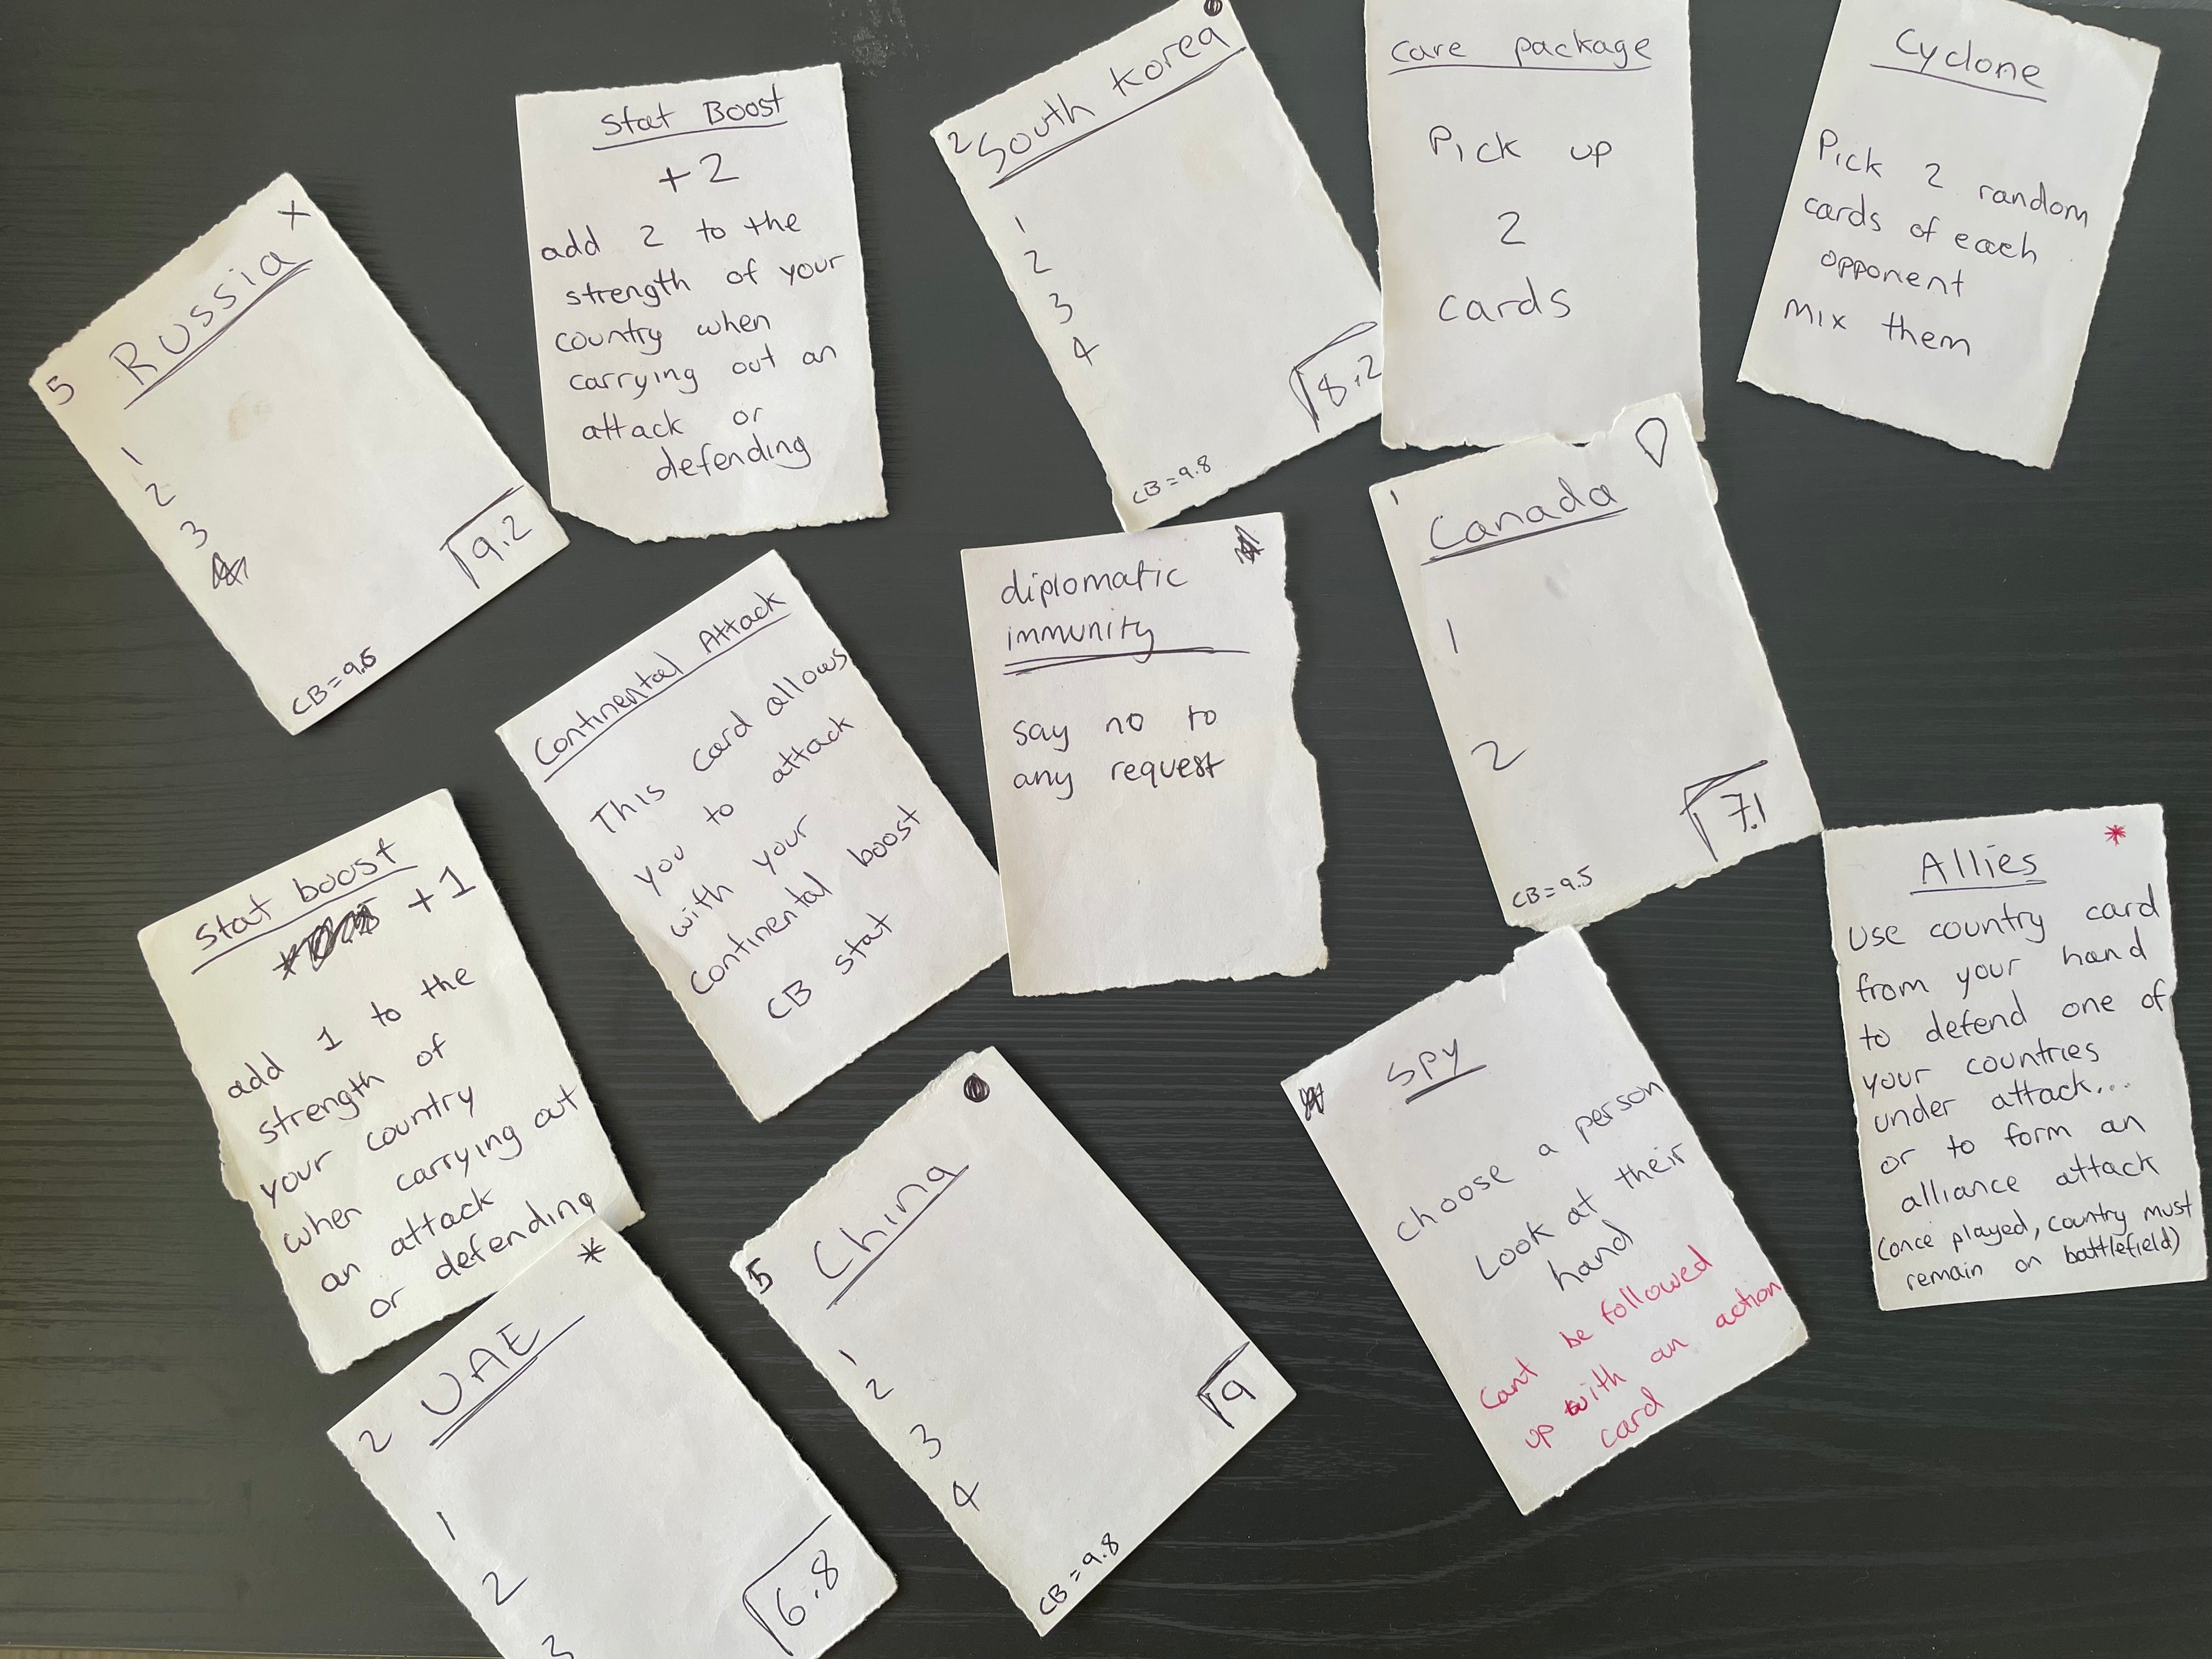 5
Russia
x
1
2
3
9.2
CB=9.5
Stat Boost
+2
add 2 to the
strength of your
country when
carrying out an
attack or
defending
2
South Korea
1
2
3
4
8.2
CB=9.8
care package
Pick up
2
cards
Cyclone
Pick 2 random
cards of each
opponent
mix them
Continental Attack
This card allows
you to attack
with your
continental boost
CB stat
diplomatic
immunity
say no to
any request
1
Canada
1
2
7.1
CB=9.5
Stat boost
+1
add 1 to the
strength of
your country
when carrying out
an attack
or defending
5
China
1
2
3
4
9
CB=9.8
Spy
choose a person
Look at their
hand
Cant be followed
up with an action
card
*
Allies
Use country card
from your hand
to defend one of
your countries
under attack...
or to form an
alliance attack
(once played, country must
remain on battlefield)
*
2
UAE
1
2
3
6.8